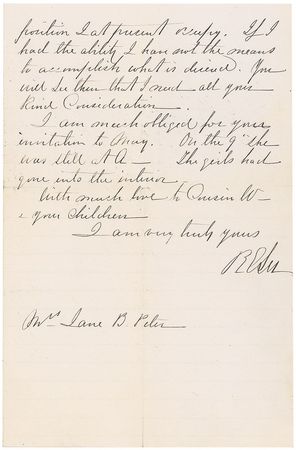 position I at present occupy. If I
had the ability I have not the means
to accomplish what is desired. You
will see then that I need all your
Kind Consideration.
I am much obliged for your
invitation to Mary. On the 9th she
was still at A—  The girls had
gone into the interior
With much love to Cousin W—
& your children
I am very truly yours
R E Lee
Mrs Jane B. Peter